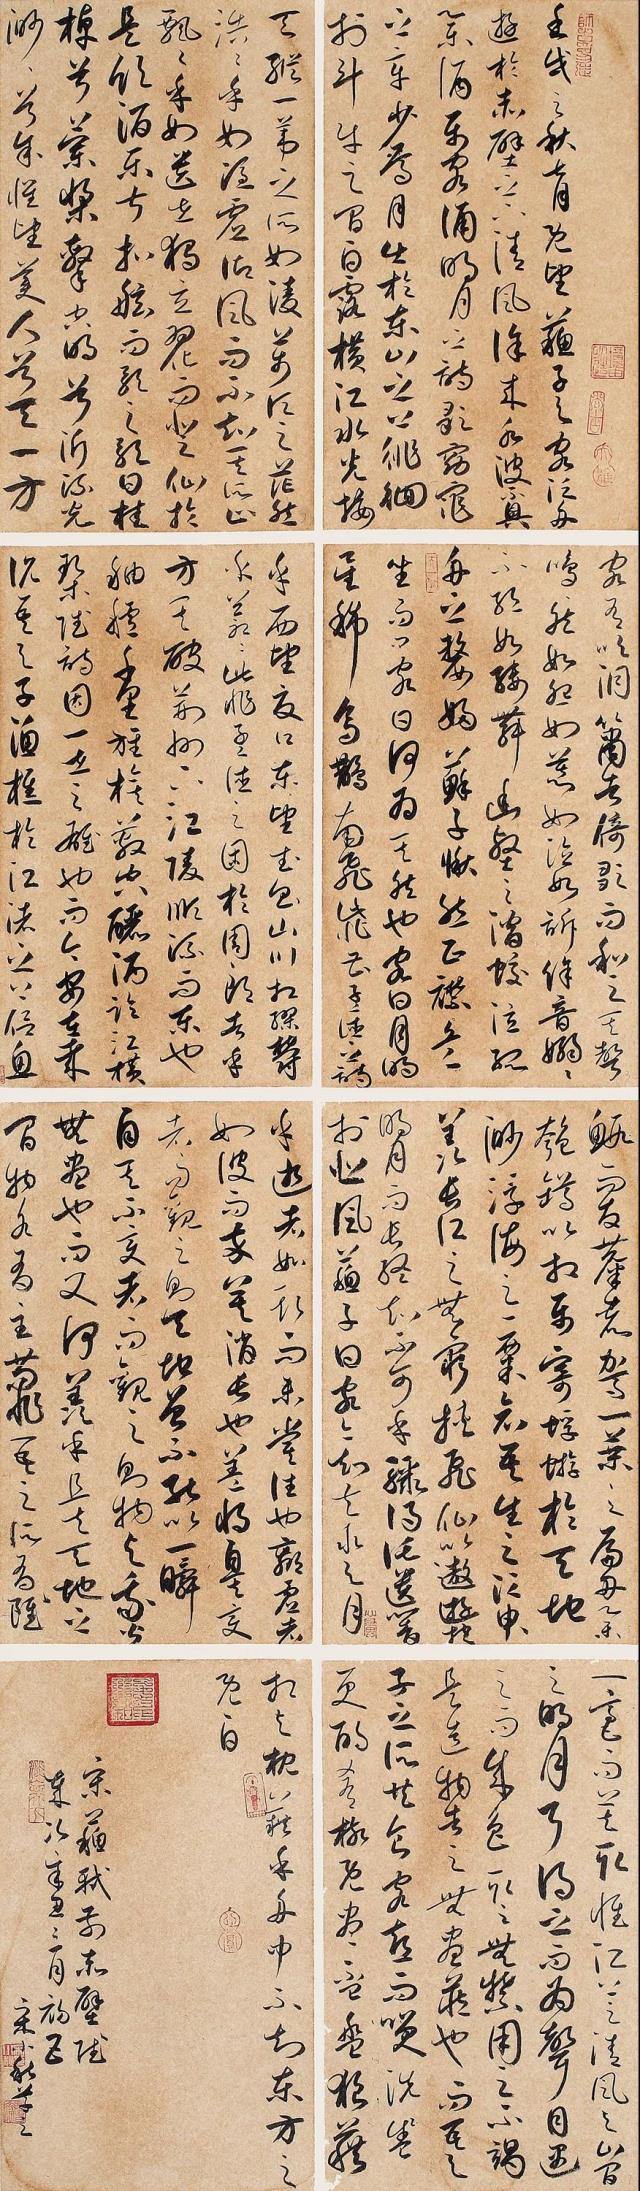 壬戌之秋七月既望蘇子與客泛舟
遊於赤壁之下清風徐來水波不興
舉酒屬客誦明月之詩歌窈窕
之章少焉月出於東山之上徘徊
於斗牛之間白露橫江水光接
天縱一葦之所如凌萬頃之茫然
浩浩乎如馮虛御風而不知其所止
飄飄乎如遺世獨立羽化而登仙於
是飲酒樂甚扣舷而歌之歌曰桂
棹兮蘭槳擊空明兮泝流光
渺渺兮予懷望美人兮天一方
客有吹洞簫者倚歌而和之其聲
嗚嗚然如怨如慕如泣如訴餘音嫋嫋
不絕如縷舞幽壑之潛蛟泣孤
舟之嫠婦蘇子愀然正襟危
坐而問客曰何為其然也客曰月明
星稀烏鵲南飛此非曹孟德之詩
乎西望夏口東望武昌山川相繆鬱
乎蒼蒼此非孟德之困於周郎者乎
方其破荊州下江陵順流而東也
舳艫千里旌旗蔽空釃酒臨江橫
槊賦詩固一世之雄也而今安在哉
況吾與子漁樵於江渚之上侶魚
蝦而友麋鹿駕一葉之扁舟舉
匏樽以相屬寄蜉蝣於天地
渺浮海之一粟哀吾生之須臾
羨長江之無窮挾飛仙以遨遊抱
明月而長終知不可乎驟得託遺響
於悲風蘇子曰客亦知夫水與月
乎逝者如斯而未嘗往也盈虛者
如彼而卒莫消長也蓋將自其變
者而觀之則天地曾不能以一瞬
自其不變者而觀之則物與我皆
無盡也而又何羨乎且夫天地之
間物各有主苟非吾之所有雖
一毫而莫取惟江上之清風與山間
之明月耳得之而為聲目遇
之而成色取之無禁用之不竭
是造物者之無盡藏也而吾與
子之所共食客喜而笑洗盞
更酌肴核既盡杯盤狼藉
相與枕藉乎舟中不知東方之
既白
宋蘇軾前赤壁賦
辛丑二月